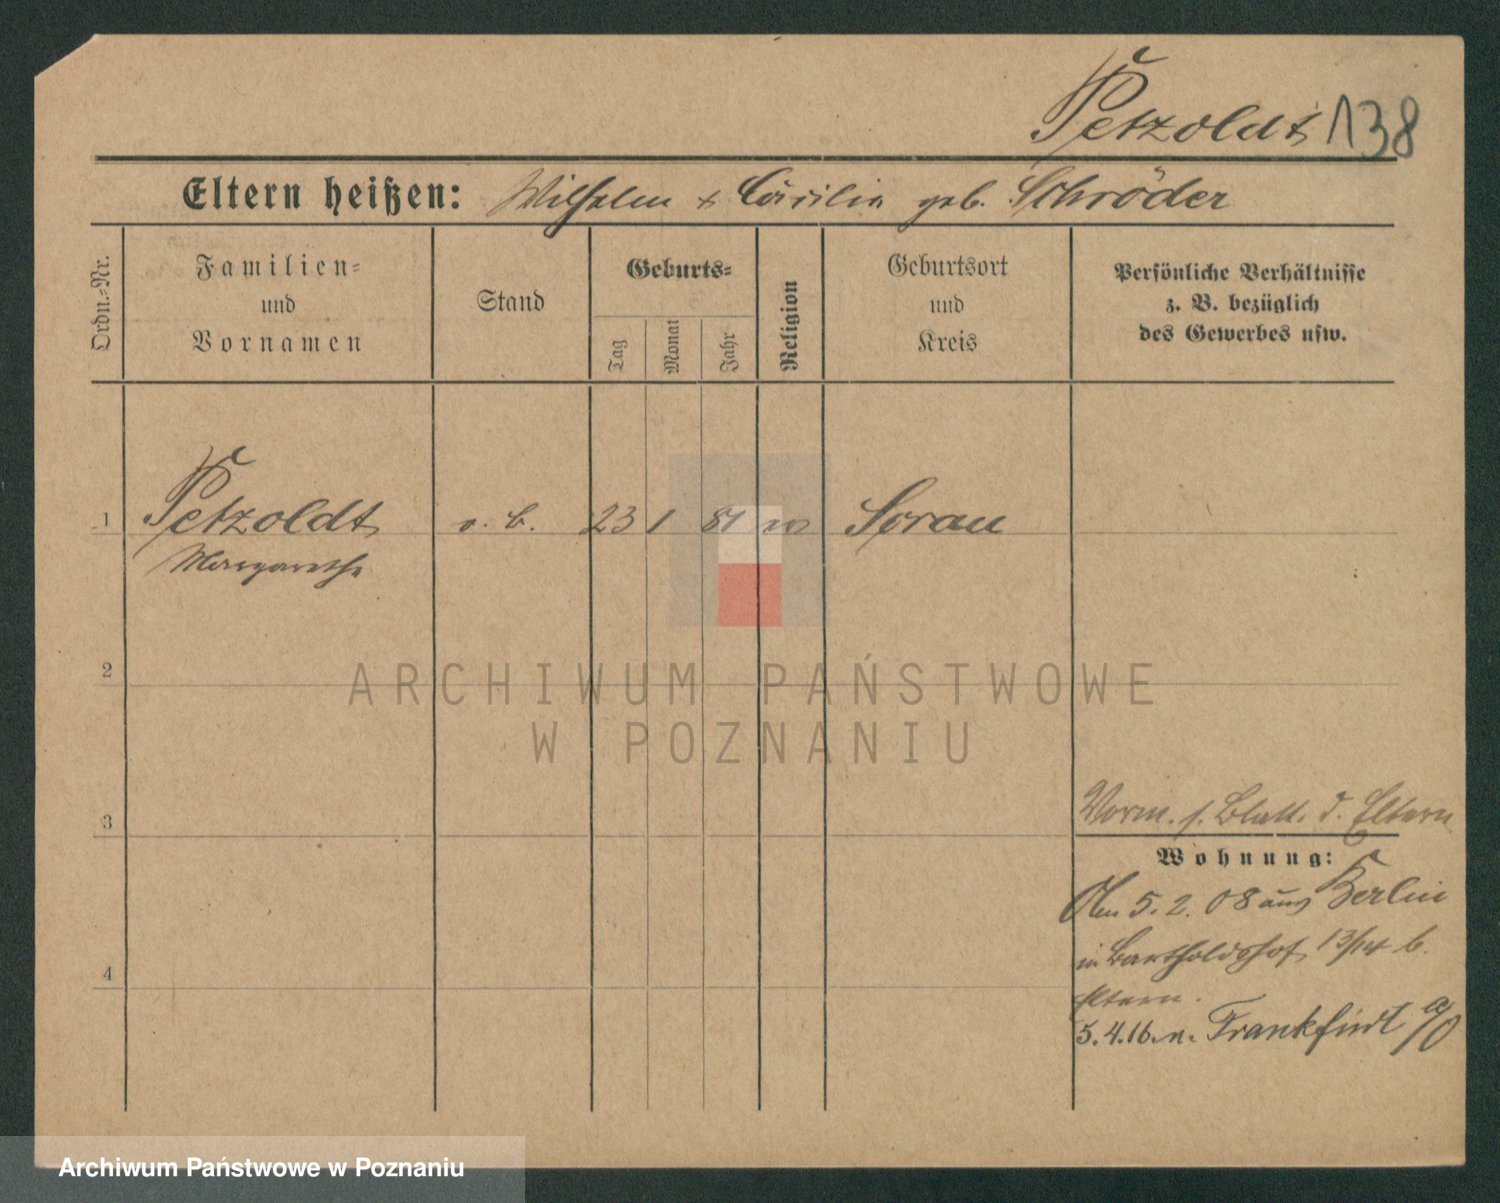 Petzoldt 138
Eltern heißen: Wilhelm + Cäcilie geb. Schröder
Ordn.-Nr.
Familien-
und
Vornamen
Stand
Geburts-
Tag
Monat
Jahr
Religion
Geburtsort
und
Kreis
Persönliche Verhältnisse
z. B. bezüglich
des Gewerbes usw.
1 Petzoldt o. b. 23 1 81 Sorau
Margarethe
2
ARCHIWUM PAŃSTWOWE
W POZNANIU
3
Vorm. s. Blatt d. Eltern
Wohnung:
Am 5. 2. 08 aus Berlin
in Bartholdshof 13/14 b.
Eltern.
4
5. 4. 16. n. Frankfurt a/O
Archiwum Państwowe w Poznaniu